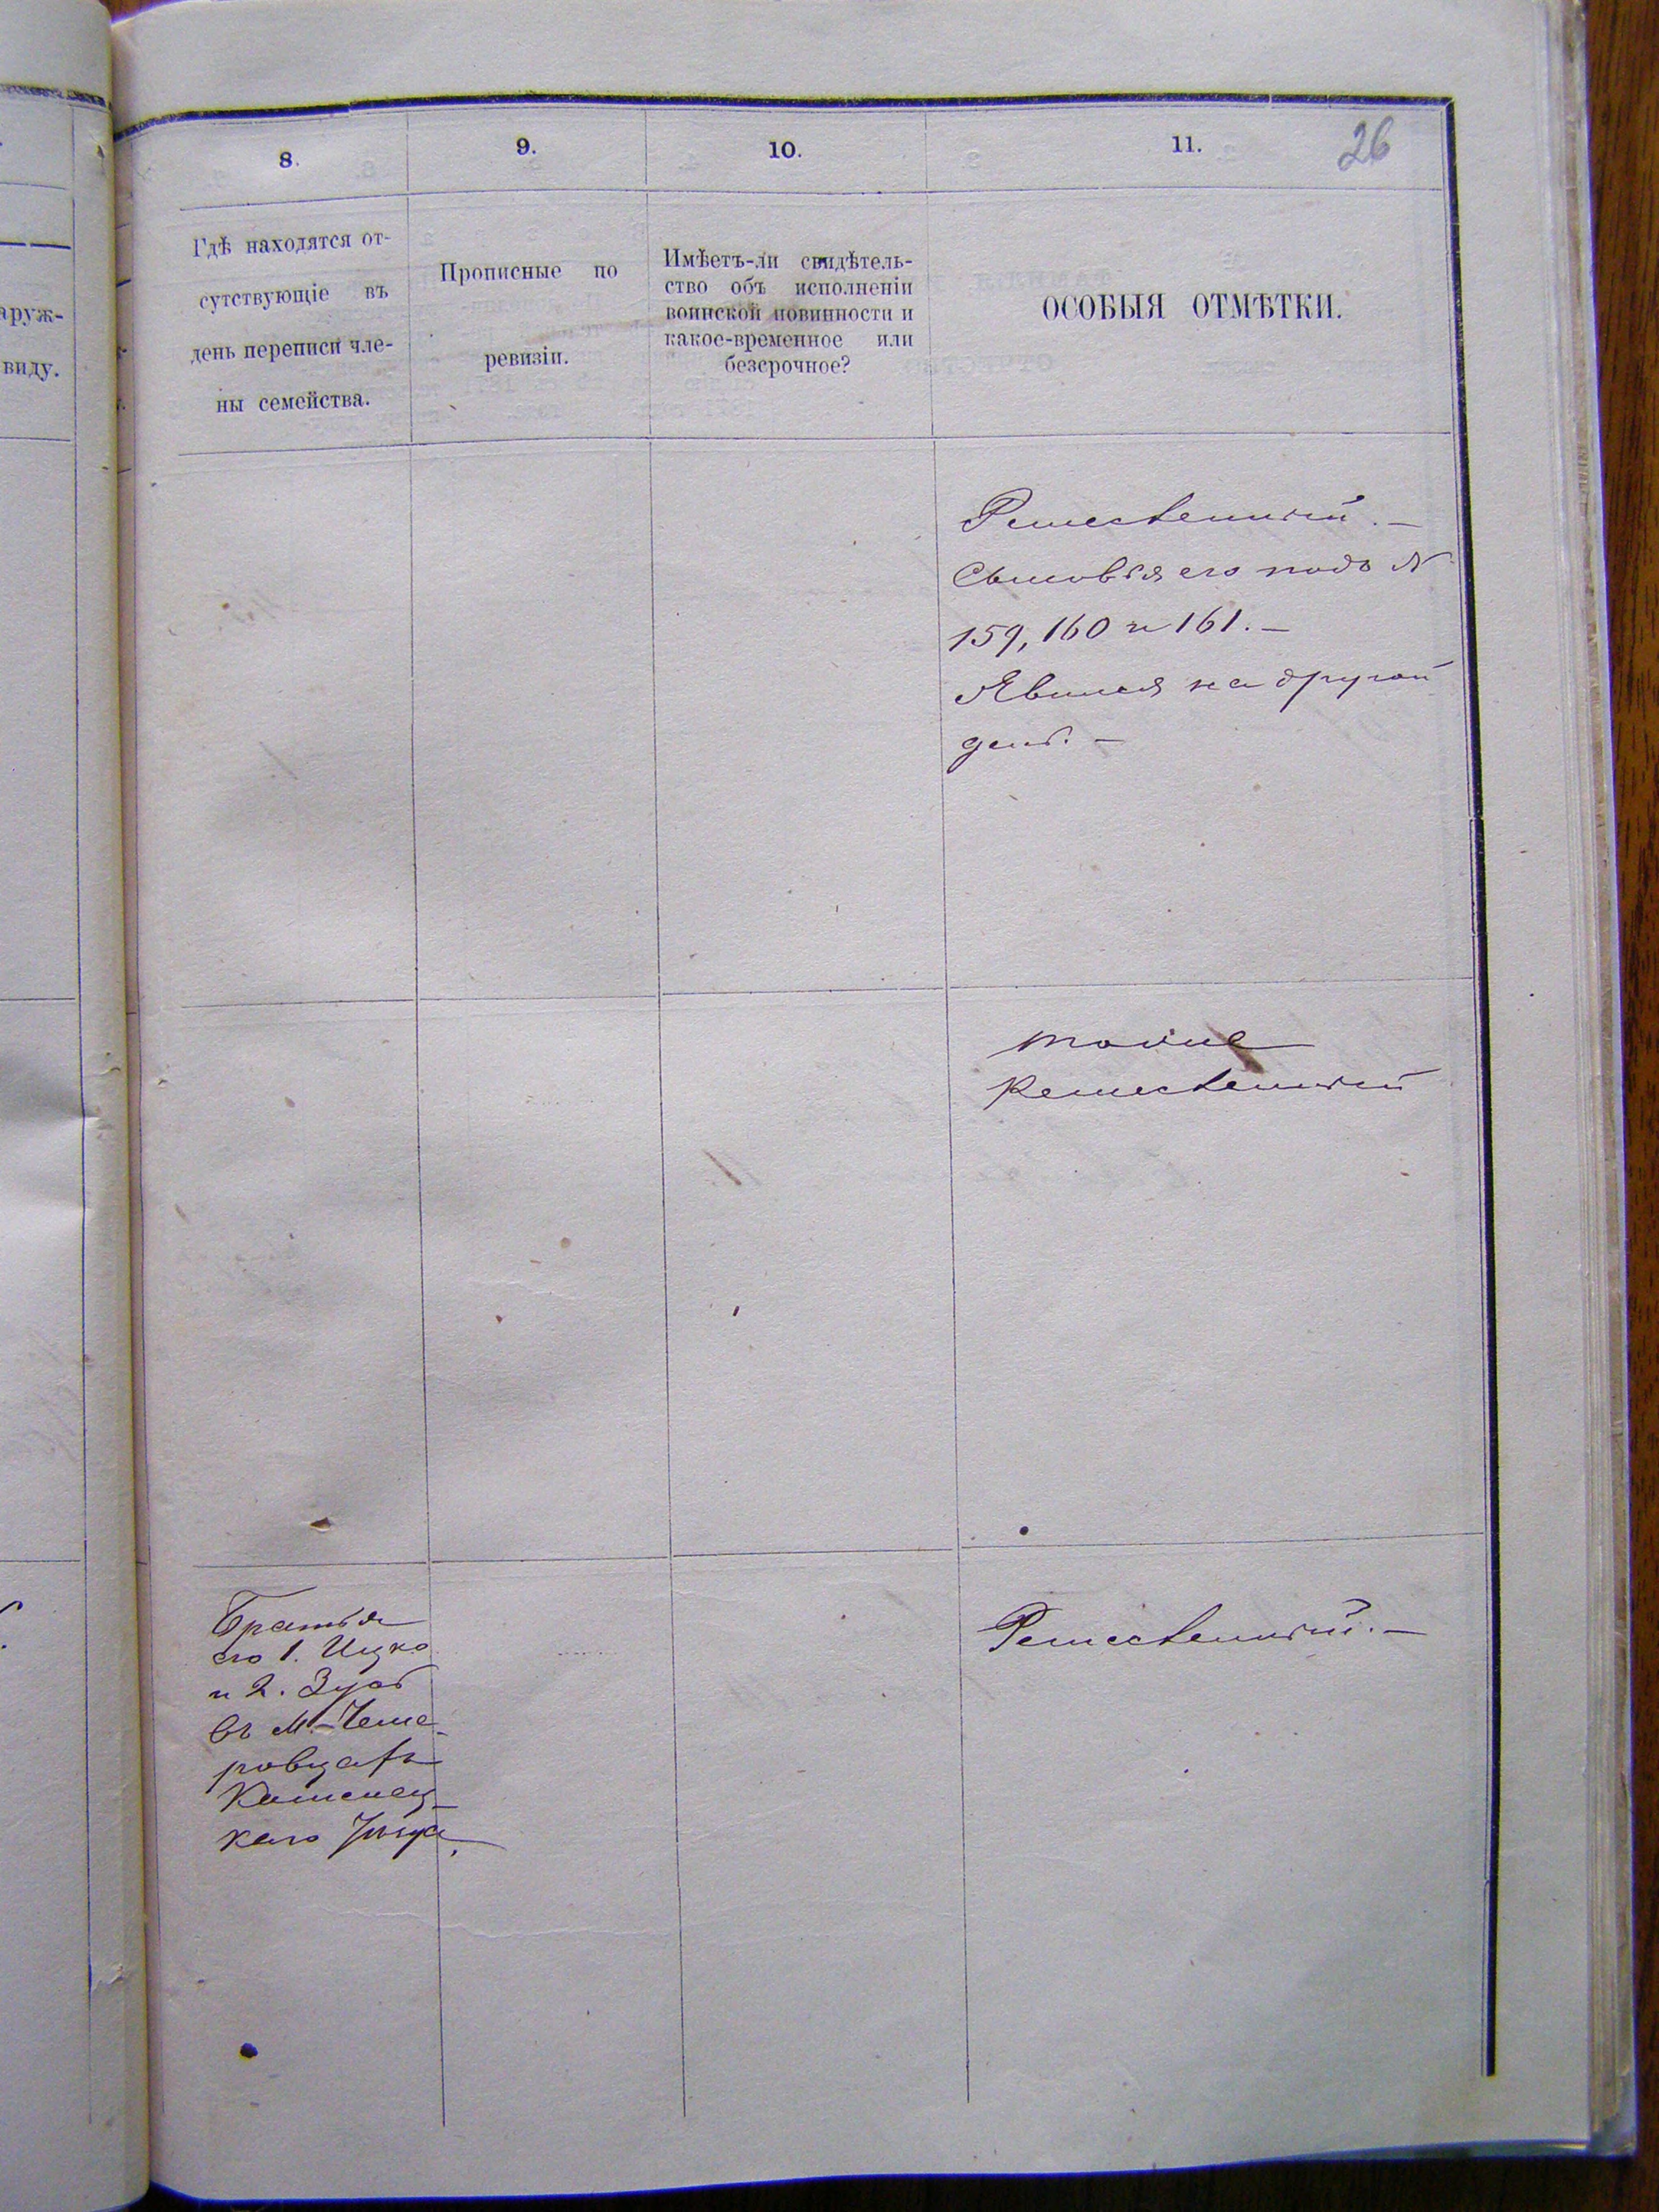 аруж-
виду.
8.
9.
10.
11.
26
Гдѣ находятся от-
сутствующіе въ
день переписи чле-
ны семейства.
Прописные по
ревизіи.
Имѣетъ-ли свидѣтель-
ство объ исполненіи
воинской повинности и
какое-временное или
безсрочное?
ОСОБЫЯ ОТМѢТКИ.
Ремесленный. —
Сыновья его подъ №
159, 160 и 161. —
Явился на другой
день. —
тоже
Ремесленный
Братья
его 1. Ицко
и 2. Зусь
въ М. Чеме-
ровцахъ
Каменец-
каго Уѣзда.
Ремесленный. —